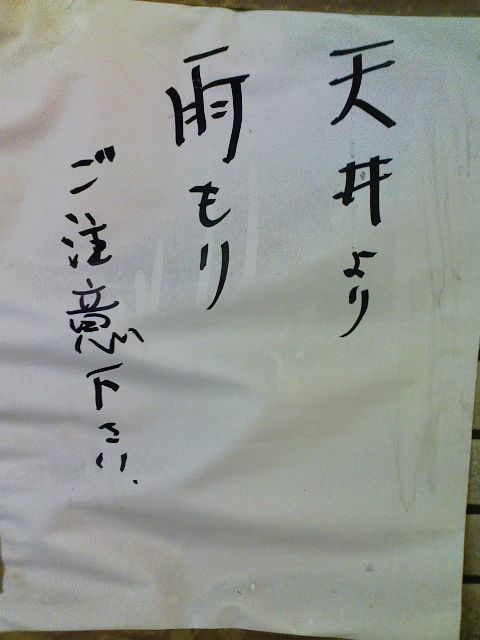 天井より
雨もり
ご注意下さい.